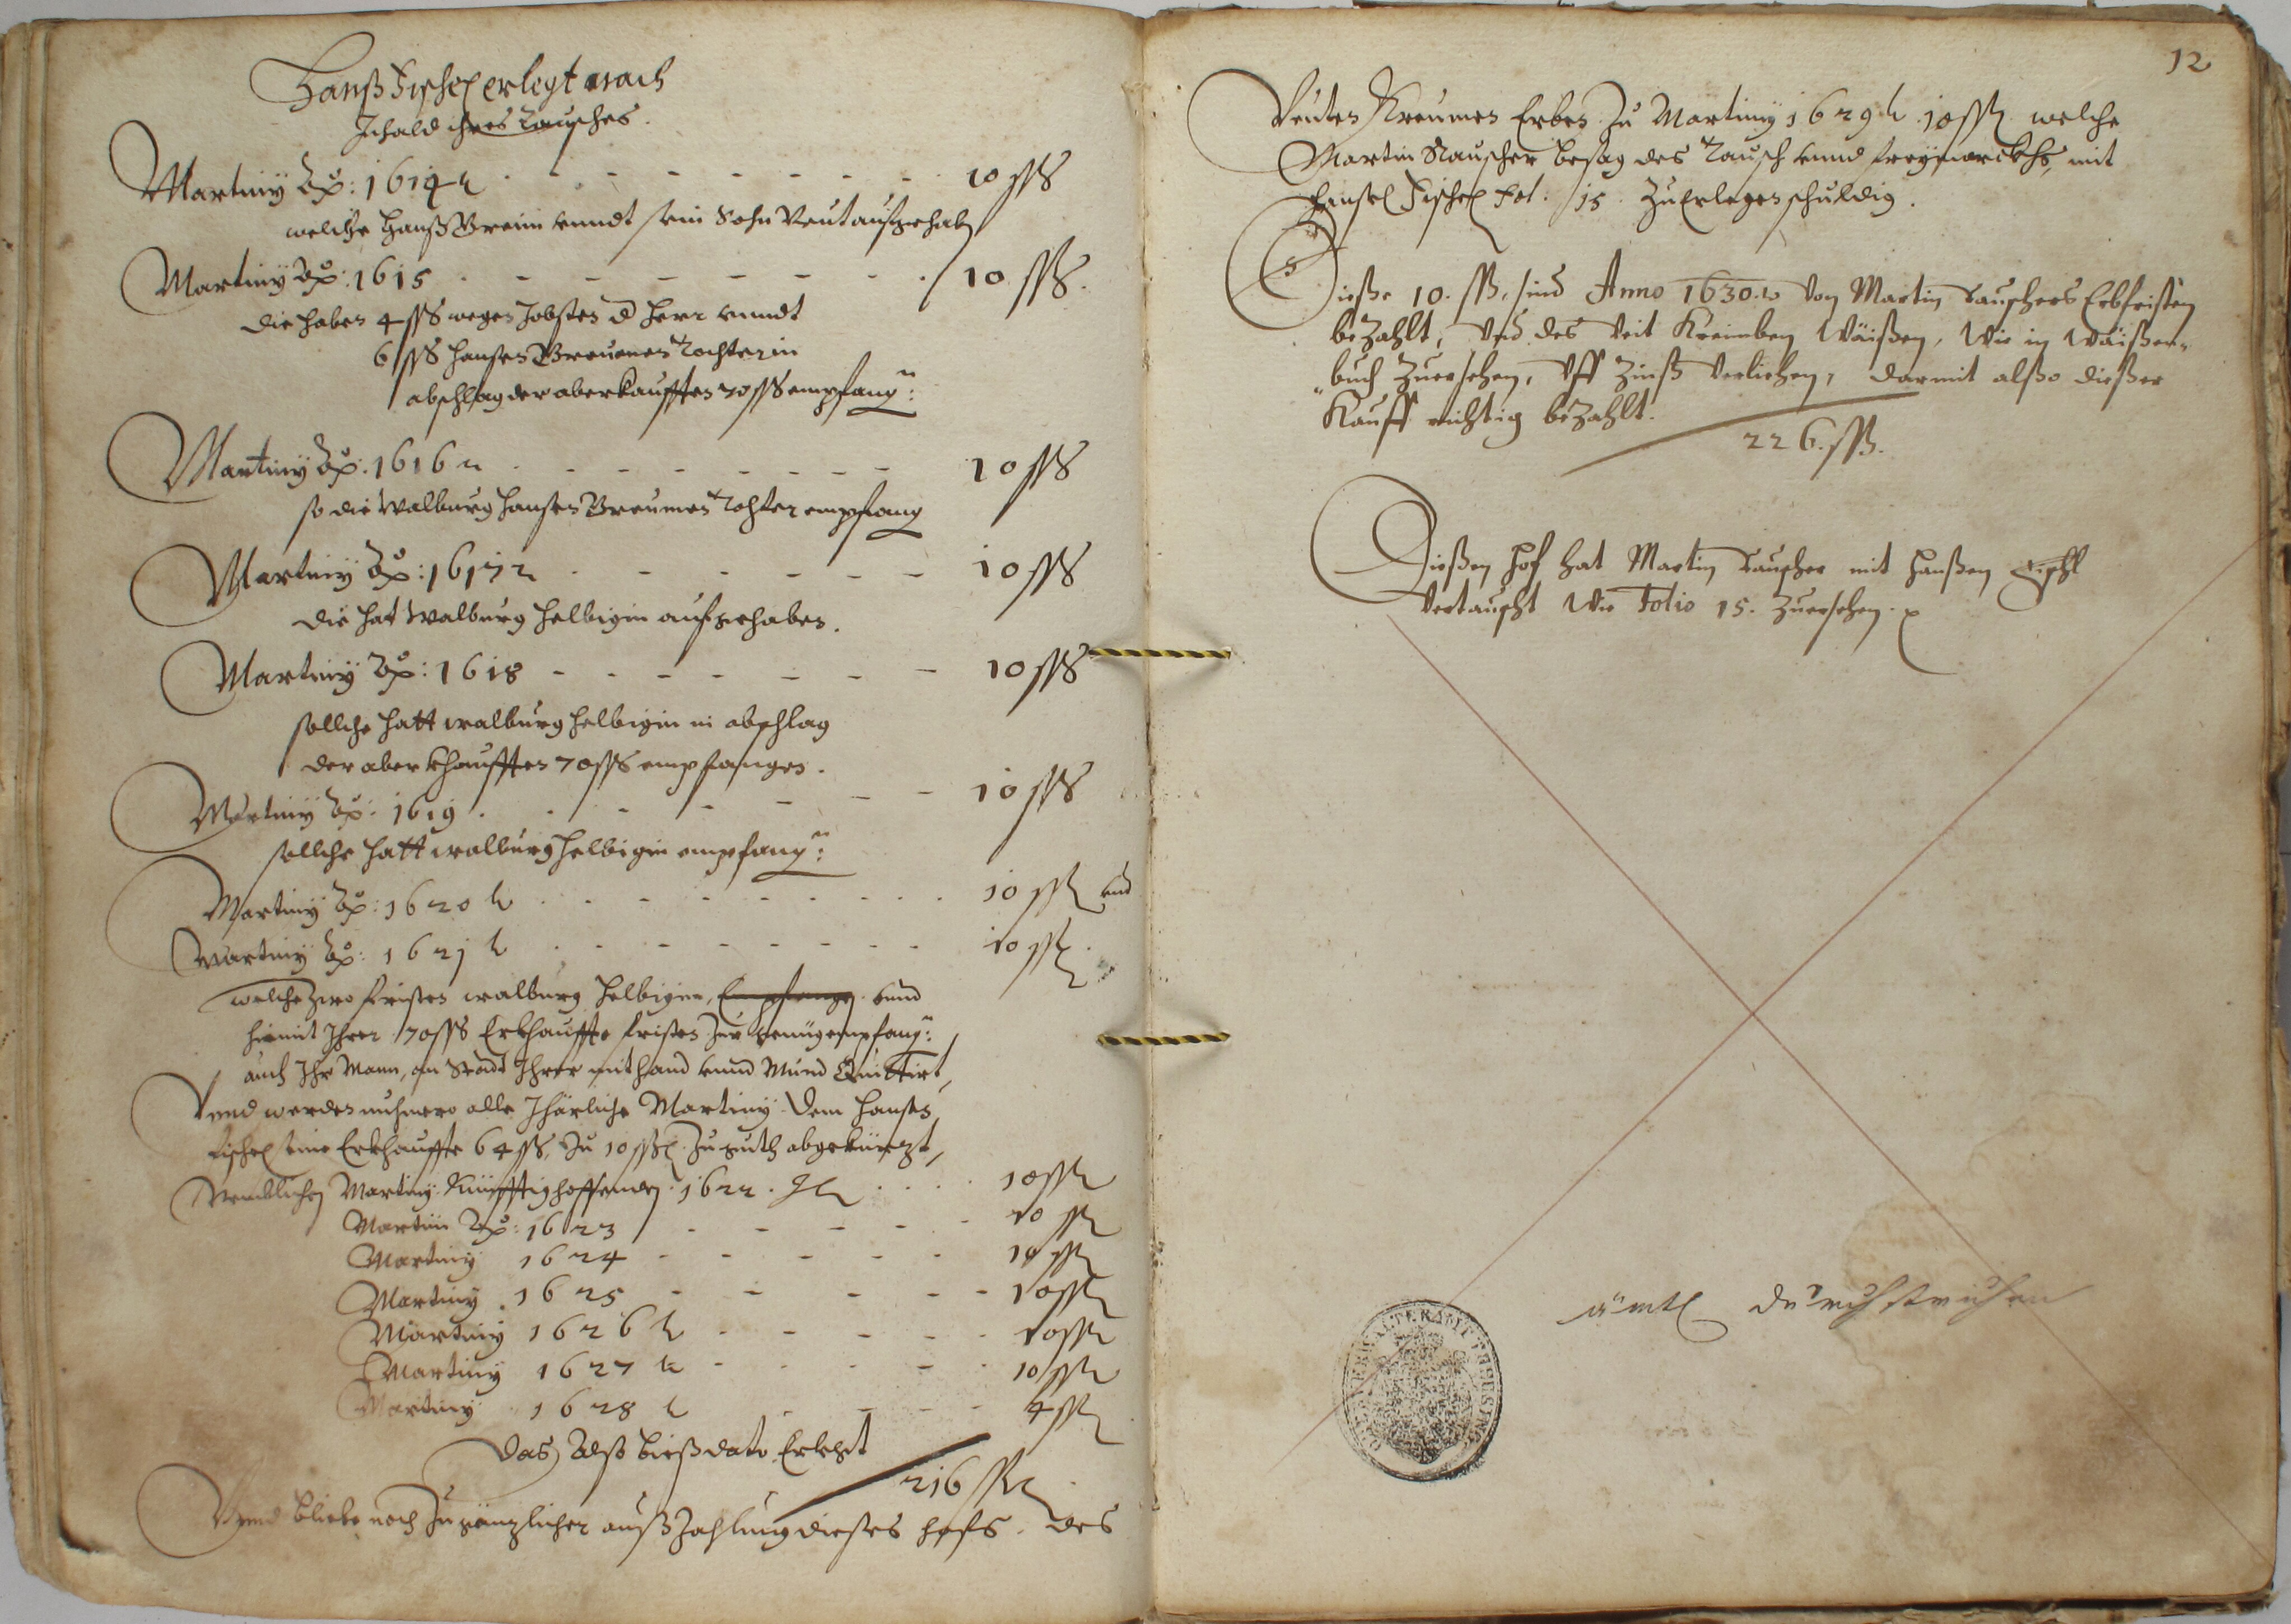 Hanß Fischl erlegt nach
Jnhald ihres Tausches.
Martiny Aõ: 1614 10 ßß
welche Hannß Breim vnndt sein Sohn Veut aufgehab
Martiny Aõ: 1615 10 ßß.
die haben 4 ßß wegen Jobsten d Herr vnndt
6 ßß Hansen Breumen Tochter in
abschlag der aberkaufften 70 ßß empfang:
Martiny Aõ: 1616 10 ßß
so die Walburg Hansen Breumen Tochter empfang
Martiny Aõ: 1617 10 ßß
die hat Walburg Helbigin aufgehaben.
Martiny Aõ: 1618 10 ßß
sollche hatt Walburg Helbigin in abschlag
der aberkhaufften 70 ßß empfangen.
Martiny Aõ: 1619 10 ßß
sollche hatt Walburg Helbigin empfang:
Martiny Aõ: 1620 10 ßß vnd
Martiny Aõ: 1621 10 ßß.
welche zwo fristen Walburg Helbigin, Empfangen vnnd
hiemit Ihrer 70 ßß Erkhauffte fristen zur genüg empfang:
auch Ihr Mann, an Stadt Ihrer mit Hand vnnd Mund Quittirt,
Vnnd werden nuhmero alle Jhärliche Martiny dem Hansen
Fischl seine Erkhauffte 64 ßß, zu 10 ßß zu guth abgekürzt,
Nemblichen Martiny Künfftig hoffender 1622. 10 ßß
Martini Aõ: 1623 10 ßß
Martiny 1624 10 ßß
Martiny 1625 10 ßß
Martiny 1626 10 ßß
Martiny 1627 10 ßß
Martiny 1628 4 ßß
Das Also bieß dato Erlegt
216 ßß
Vnnd bliebe noch zu gänzlicher auß Zahlung dieses Hofs. des
12
Veuten Kreumen Erben zu Martiny 1629 10 ßß welche
Martin Rauscher besag des Tausch vnnd freymarckhs, mit
Hansl Fischl Fol: 15. zu Erlegen schuldig.
Dieße 10. ßß, sind Anno 1630. von Martin Rauschers Erbfristen
bezahlt, vnd des Veit Kreimben Wäißen, wie in Wäißen-
buch zuersehen, vff Zinß verliehen, darmit alßo dießer
Kauff richtig bezahlt.
226. ßß.
Dießen Hof hat Martin Rauscher mit Hanßen Fischl
Vertauscht wie Folio 15. zuersehen.
ämtl durchstrichen